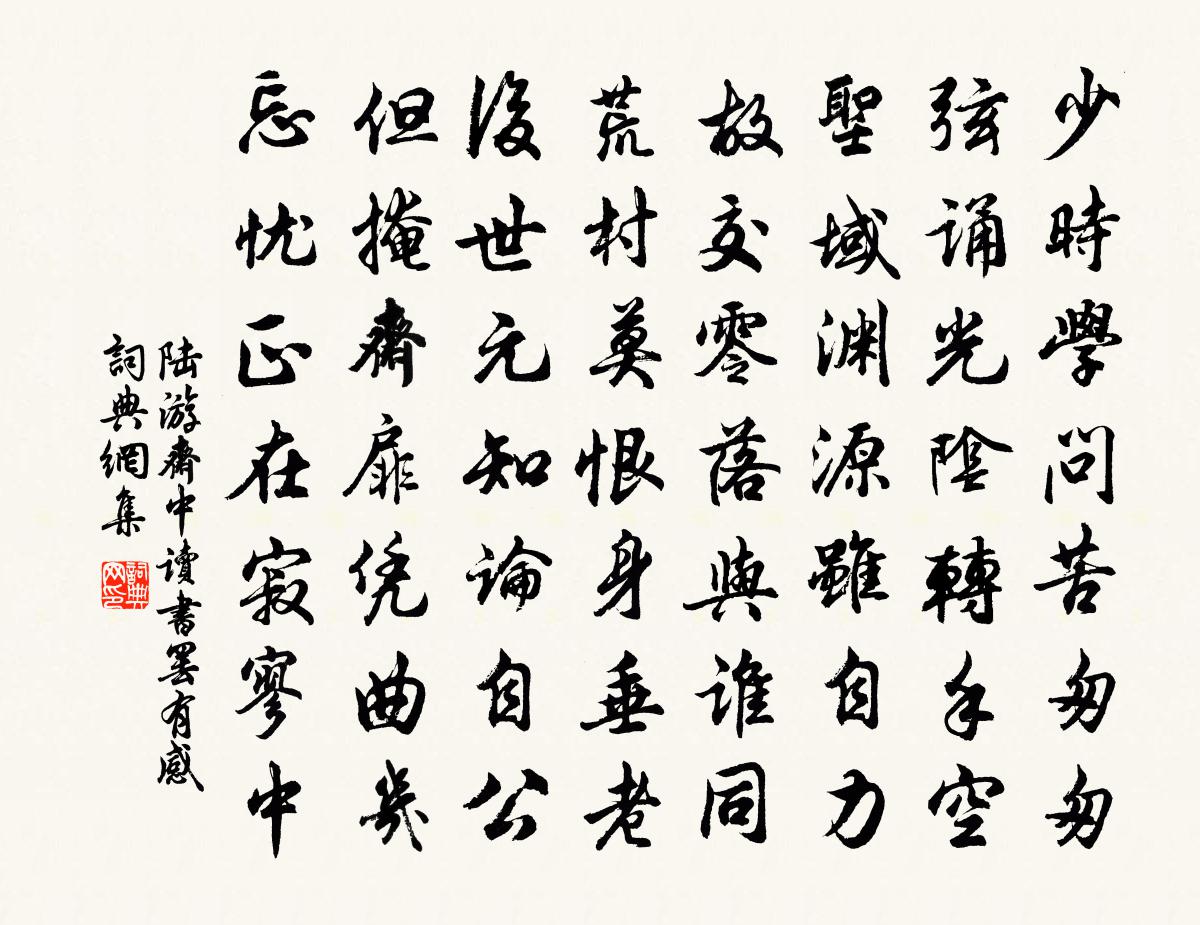 少時學問苦匆匆
弦誦光陰轉手空
聖域淵源雖自力
故交零落與誰同
荒村莫恨身垂老
後世元知論自公
但掩齋扉凭曲幾
忘忧正在寂寥中
陆游齋中讀書罢有感
詞典網集
詞典网印